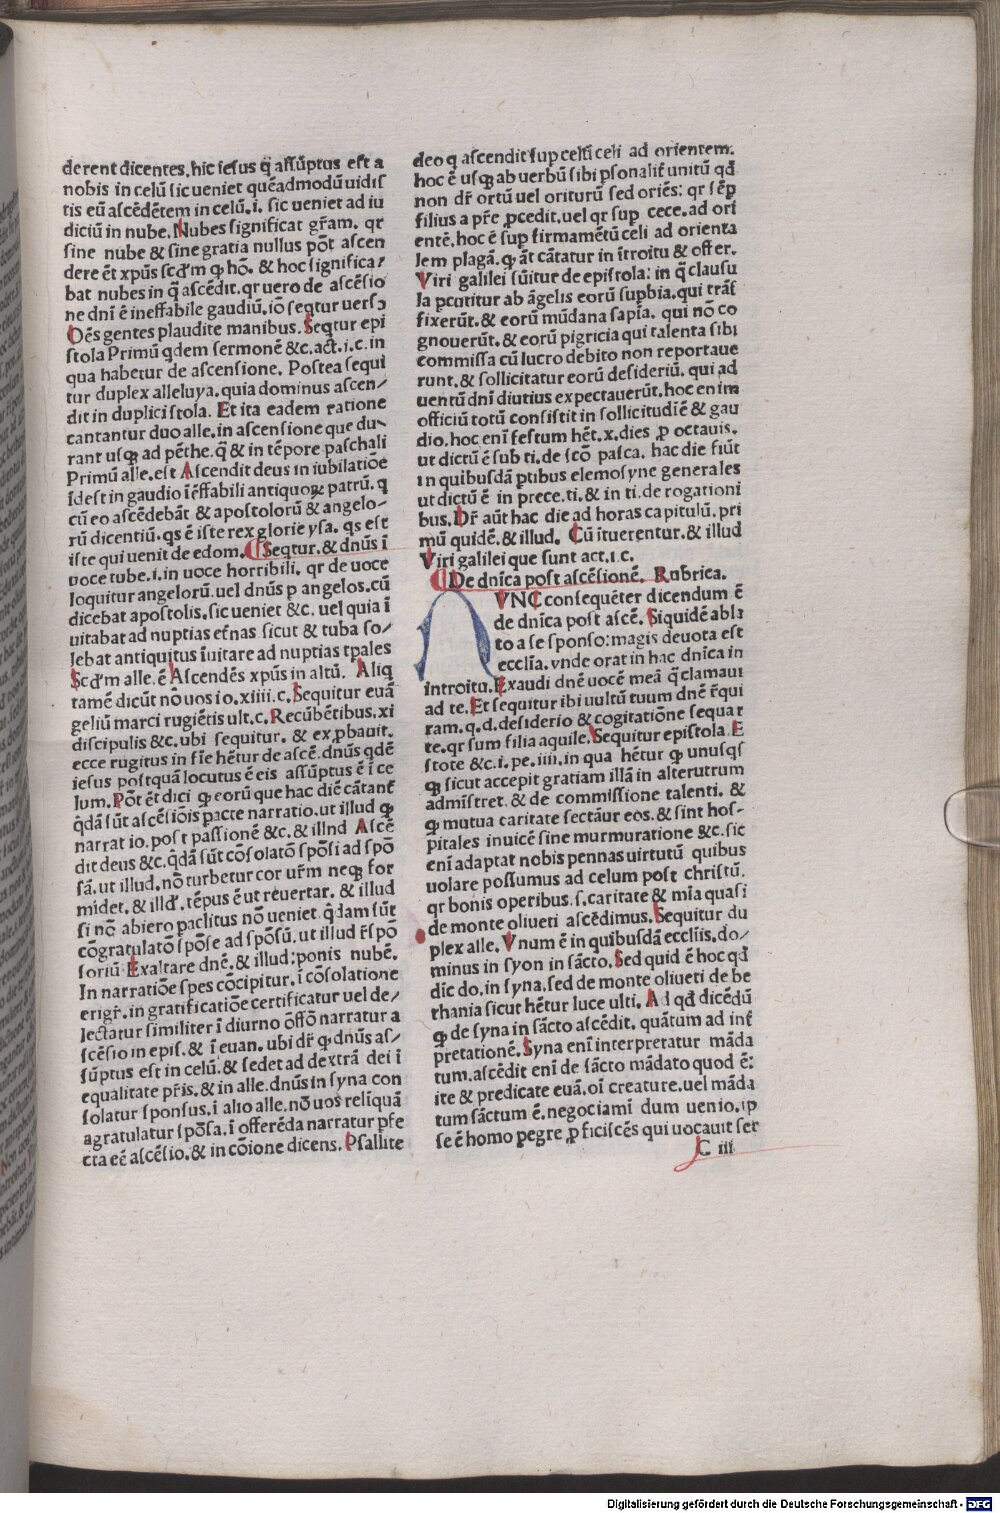 derent dicentes. hic iesus q̄ assūptus est a
nobis in celū sic ueniet quēadmodū uidis
tis eū ascēdētem in celū. i. sic ueniet ad iu
diciū in nube. Nubes significat gr̄am. qr
sine nube & sine gratia nullus pōt ascen
dere ēt xpūs scd̓m ꝙ hō. & hoc significa/
bat nubes in q̄ ascēdit. qr uero de ascēsio
ne dnī ē ineffabile gaudiū. iō seqtur uersɔ
Oēs gentes plaudite manibus. Seqtur epi
stola Primū qdem sermonē &c. act. i. c. in
qua habetur de ascensione. Postea sequi
tur duplex alleluya. quia dominus ascen/
dit in duplici stola. Et ita eadem ratione
cantantur duo alle. in ascensione que du-
rant usqꝫ ad pēthe. q̄ & in tēpore paschali
Primū alle. est Ascendit deus in iubilatiōe
Idest in gaudio īeffabili antiquoꝝ patrū. q
cū eo ascēdebāt & apostolorū & angelo-
rū dicentiū. qs ē iste rex glorie ysa. qs est
iste qui uenit de edom. ¶ Seqtur. & dnūs ī
uoce tube. i. in uoce horribili. qr de uoce
loquitur angelorū. uel dnūs p angelos. cū
dicebat apostolis. sic ueniet &c. uel quia ī
uitabat ad nuptias et̄nas sicut & tuba so/
lebat antiquitus īuitare ad nuptias tpales
Scd̓m alle. ē Ascendēs xpūs in altū. Aliq
tamē dicūt nō uos io. xiiii. c. Sequitur euā
geliū marci rugiētis ult. c. Recūbētibus. xi
discipulis &c. ubi sequitur. & exꝓbauit.
ecce rugitus in fīe hētur de ascē. dnūs qdē
iesus postquā locutus ē eis assūptus ē ī ce
lum. Pōt ēt dici ꝙ eorū que hac diē cātant̄
q̄dā sūt ascēsiōis pacte narratio. ut illud ꝙ
narratio. post passionē &c. & illnd Ascē
dit deus &c. q̄dā sūt cōsolatō spōsi ad spō
sā. ut illud. nō turbetur cor ur̄m neqꝫ for
midet. & illd̓. tēpus ē ut reuertar. & illud
si nō abiero paclitus nō ueniet. q̄dam sūt
cōgratulatō spōse ad spōsū. ut illud r̄spō
soriū Exaltare dnē. & illud: ponis nubē.
In narratiōe spes cōcipitur. ī cōsolatione
erigr̄. in gratificatiōe certificatur uel de/
lectatur similiter ī diurno ōffō narratur a
scēsio in epis. & ī euan. ubi dr̄ ꝙ dnūs as/
sūptus est in celū. & sedet ad dextrā dei ī
equalitate pr̄is. & in alle. dnūs in syna con
solatur sponsus. ī alio alle. nō uos relīquā
agratulatur spōsa. ī offerēda narratur pfe
cta eē ascēsio. & in cōione dicens. Psallite
deo q ascendit sup celū celi ad orientem.
hoc ē usqꝫ ab uerbū sibi psonalit̄ unitū qd̓
non dr̄ ortū uel oriturū sed oriēs: qr sēp
filius a pr̄e ꝓcedit. uel qr sup cece. ad ori
entē. hoc ē sup firmamētū celi ad orienta
lem plagā. ꝙ āt cātatur in ītroitu & offer.
Viri galilei sūitur de epistola: in q̄ clausu
la pcutitur ab āgelis eorū supbia. qui trās
fixerūt. & eorū mūdana sapīa. qui nō co
gnouerūt. & eorū pigricia qui talenta sibi
commissa cū lucro debito non reportaue
runt. & sollicitatur eorū desideriū. qui ad
uentū dnī diutius expectauerūt. hoc enim
officiū totū consistit in sollicitudīē & gau
dio. hoc enī festum hēt. x. dies ꝓ octauis.
ut dictū ē sub ti. de scō pasca. hac die fiūt
in quibusdā ptibus elemosyne generales
ut dictū ē in prece. ti. & in ti. de rogationi
bus. Dr̄ aūt hac die ad horas capitulū. pri
mū quidē. & illud. Cū ituerentur. & illud
Viri galilei que sunt act. i. c.
¶ De dnīca post ascēsionē. Rubrica.
NVNC consequēter dicendum ē
de dnīca post ascē. Siquidē abla
to a se sponso: magis deuota est
ecclīa. vnde orat in hac dnīca in
introitu. Exaudi dnē uocē meā q̄ clamaui
ad te. Et sequitur ibi uultū tuum dnē r̄qui
ram. q. d. desiderio & cogitatiōne sequar
te. qr sum filia aquile. Sequitur epistola. E
stote &c. i. pe. iiii. in qua hētur ꝙ unusqs
qꝫ sicut accepit gratiam illā in alterutrum
admīstret. & de commissione talenti. &
ꝙ mutua caritate sectāur eos. & sint hos-
pitales inuicē sine murmuratione &c. sic
enī adaptat nobis pennas uirtutū quibus
uolare possumus ad celum post christū.
qr bonis operibus. s. caritate & mīa quasi
de monte oliueti ascēdimus. Sequitur du
plex alle. Vnum ē in quibusdā ecclīis. do/
minus in syon in sācto. Sed quid ē hoc qd̓
dīc do. in syna. sed de monte oliueti de be
thania sicut hētur luce ulti. Ad qd̓ dicēdū
ꝙ de syna in sācto ascēdit. quātum ad int̄
pretationē. Syna enī interpretatur māda
tum. ascēdit enī de sācto mādato quod ē:
ite & predicate euā. oī creature. uel māda
tum sāctum ē. negociamī dum uenio. ip
se ē homo pegre ꝓficiscēs qui uocauit ser
C iii
Digitalisierung gefördert durch die Deutsche Forschungsgemeinschaft - DFG